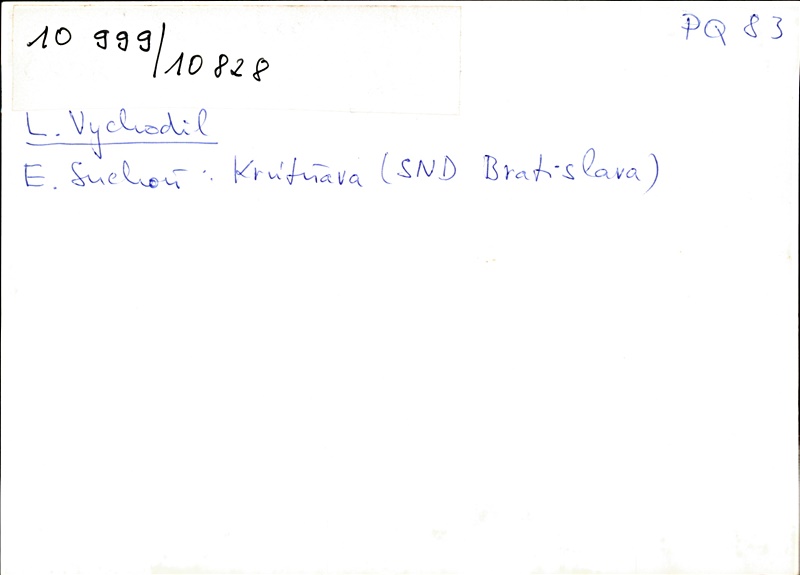 10 999/10 828
PQ 83
L. Vychodil
E. Suchoň: Krútňava (SND Bratislava)